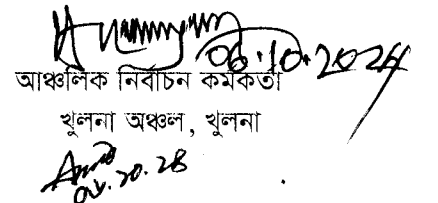 06.10.2024
আঞ্চলিক নির্বাচন কর্মকর্তা
খুলনা অঞ্চল, খুলনা
০৬.১০.২৪